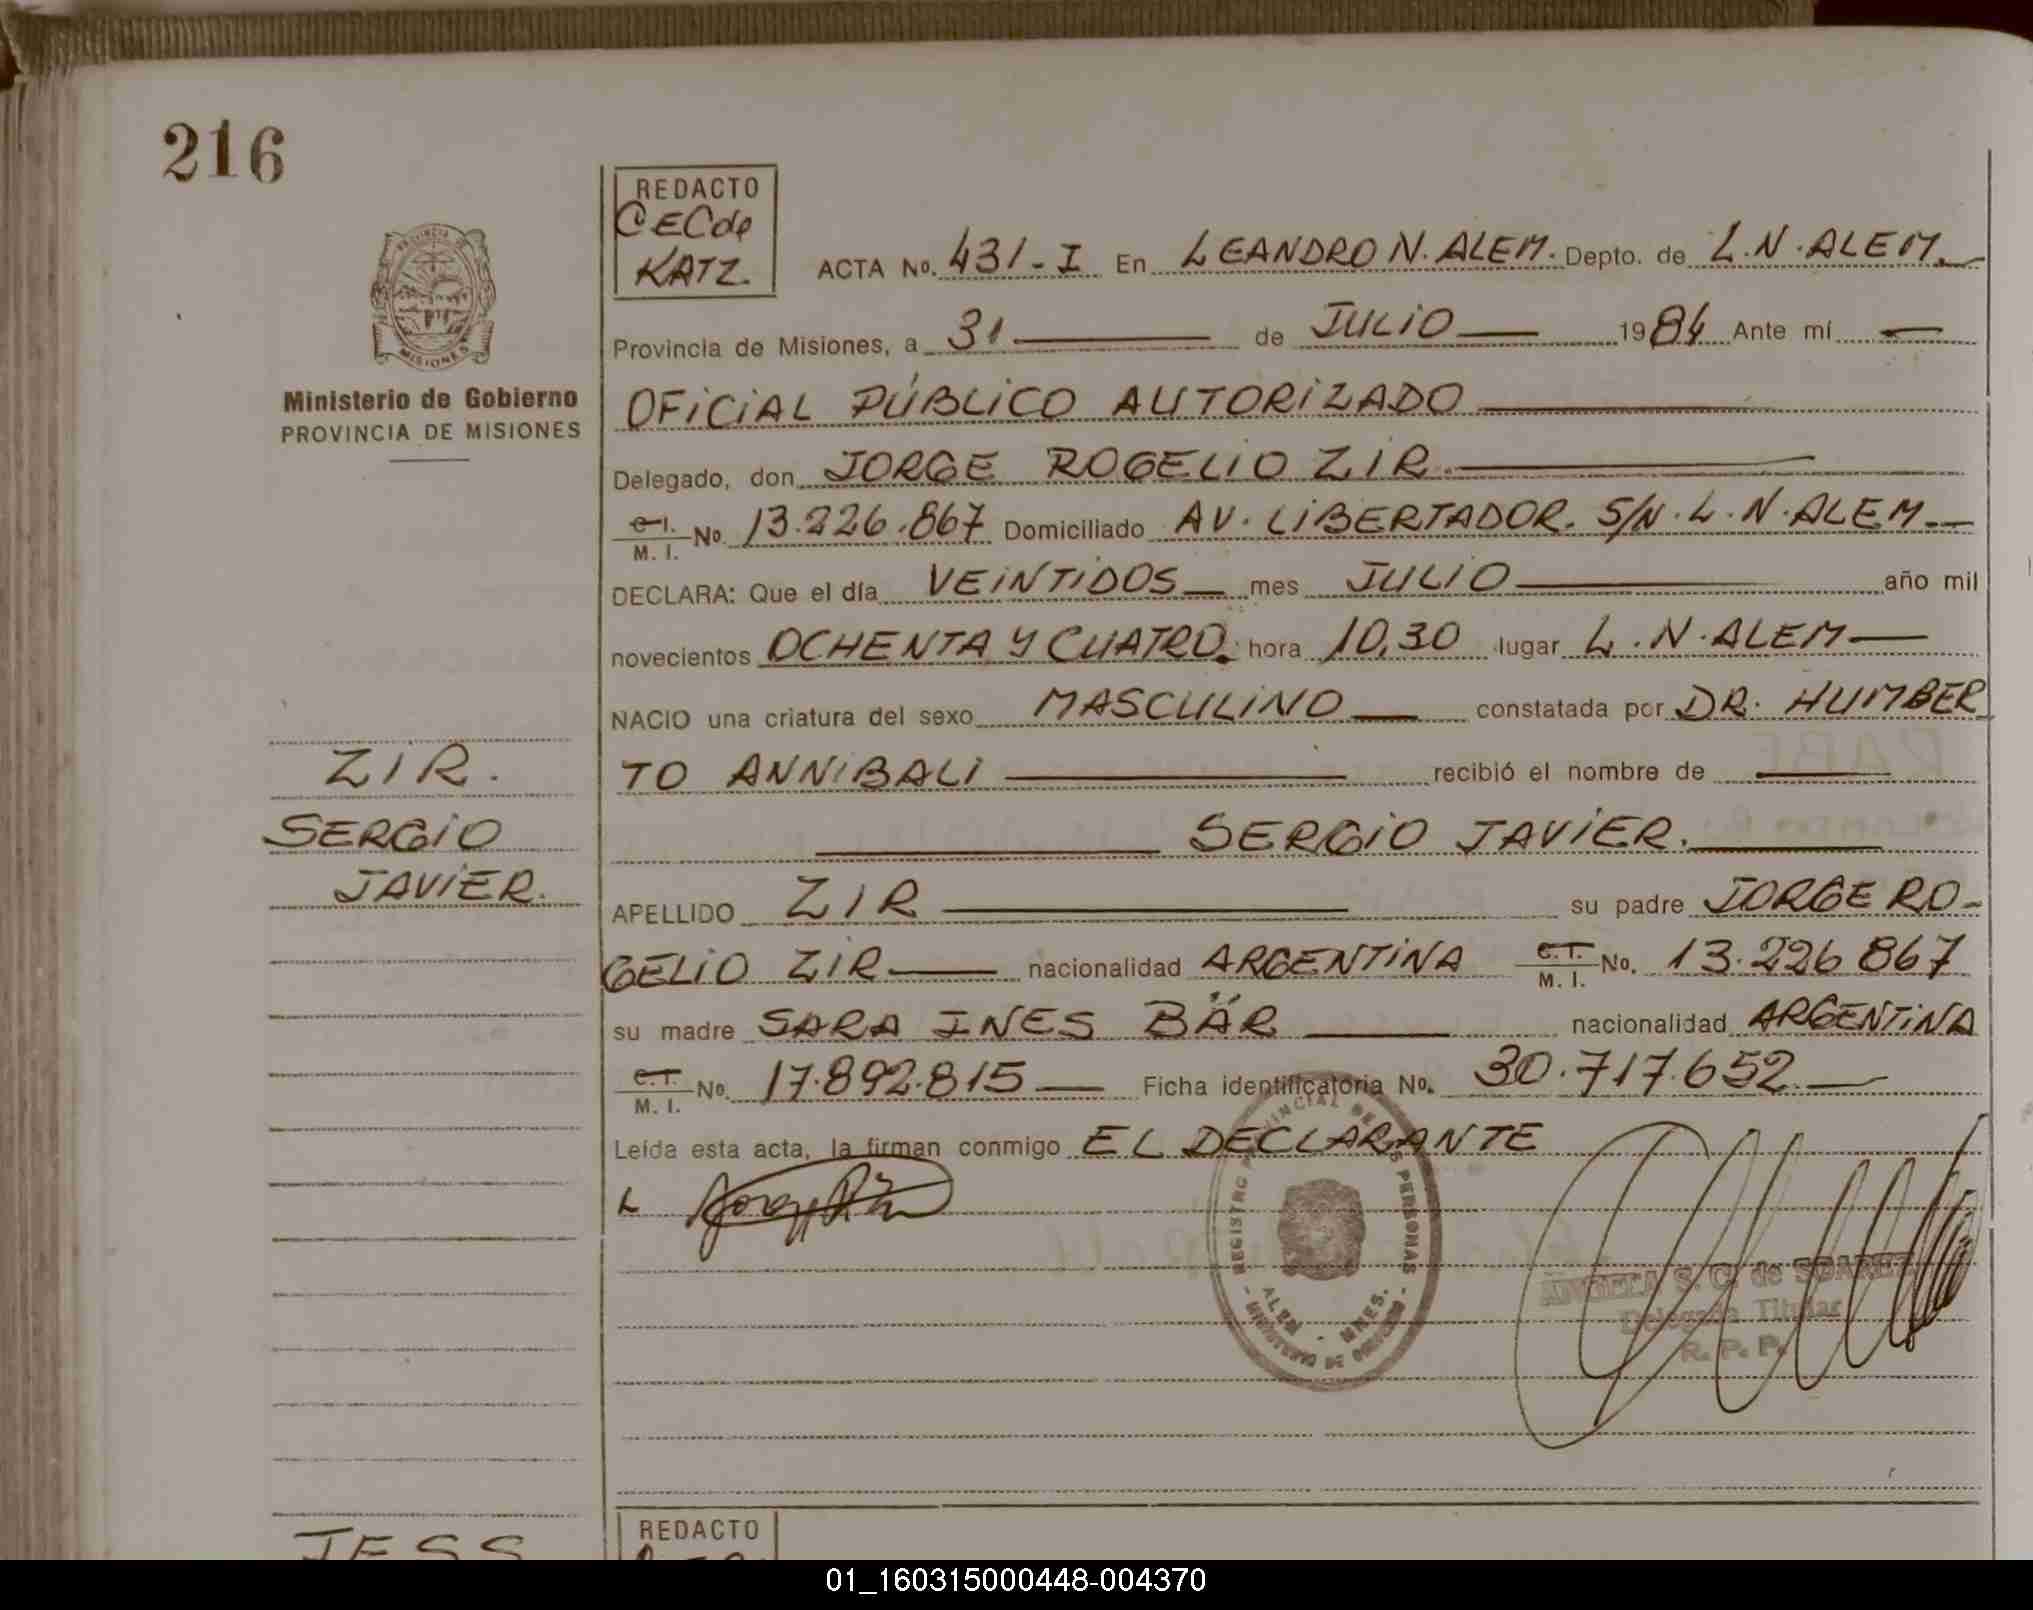 216
REDACTO
CECde
KATZ.
ACTA No. 431-I En LEANDRO N. ALEM. Depto. de L.N.ALEM.
PROVINCIA DE
MISIONES
Ministerio de Gobierno
PROVINCIA DE MISIONES
Provincia de Misiones, a 31 de JULIO 1984 Ante mí
OFICIAL PÚBLICO AUTORIZADO
Delegado, don JORGE ROGELIO ZIR.
C.I. M. I. No. 13.226.867 Domiciliado AV. LIBERTADOR. S/N. L.N.ALEM.
DECLARA: Que el día VEINTIDOS mes JULIO año mil
novecientos OCHENTA Y CUATRO. hora 10,30 lugar L.N.ALEM
NACIO una criatura del sexo MASCULINO constatada por DR. HUMBER
TO ANNIBALI recibió el nombre de
SERGIO JAVIER.
ZIR.
SERGIO
JAVIER.
APELLIDO ZIR su padre JORGE RO-
GELIO ZIR nacionalidad ARGENTINA C.I. M. I. No. 13.226 867
su madre SARA INES BÄR nacionalidad ARGENTINA
C.I. M. I. No. 17.892.815 Ficha identificatoria No. 30.717.652.
Leída esta acta, la firman conmigo EL DECLARANTE
REGISTRO PROVINCIAL DE LAS PERSONAS
ALEM - MNES.
MINISTERIO DE GOBIERNO
ANGELA S. C. de SUAREZ
Delegada Titular
R. P. P.
JESS
REDACTO
01_160315000448-004370